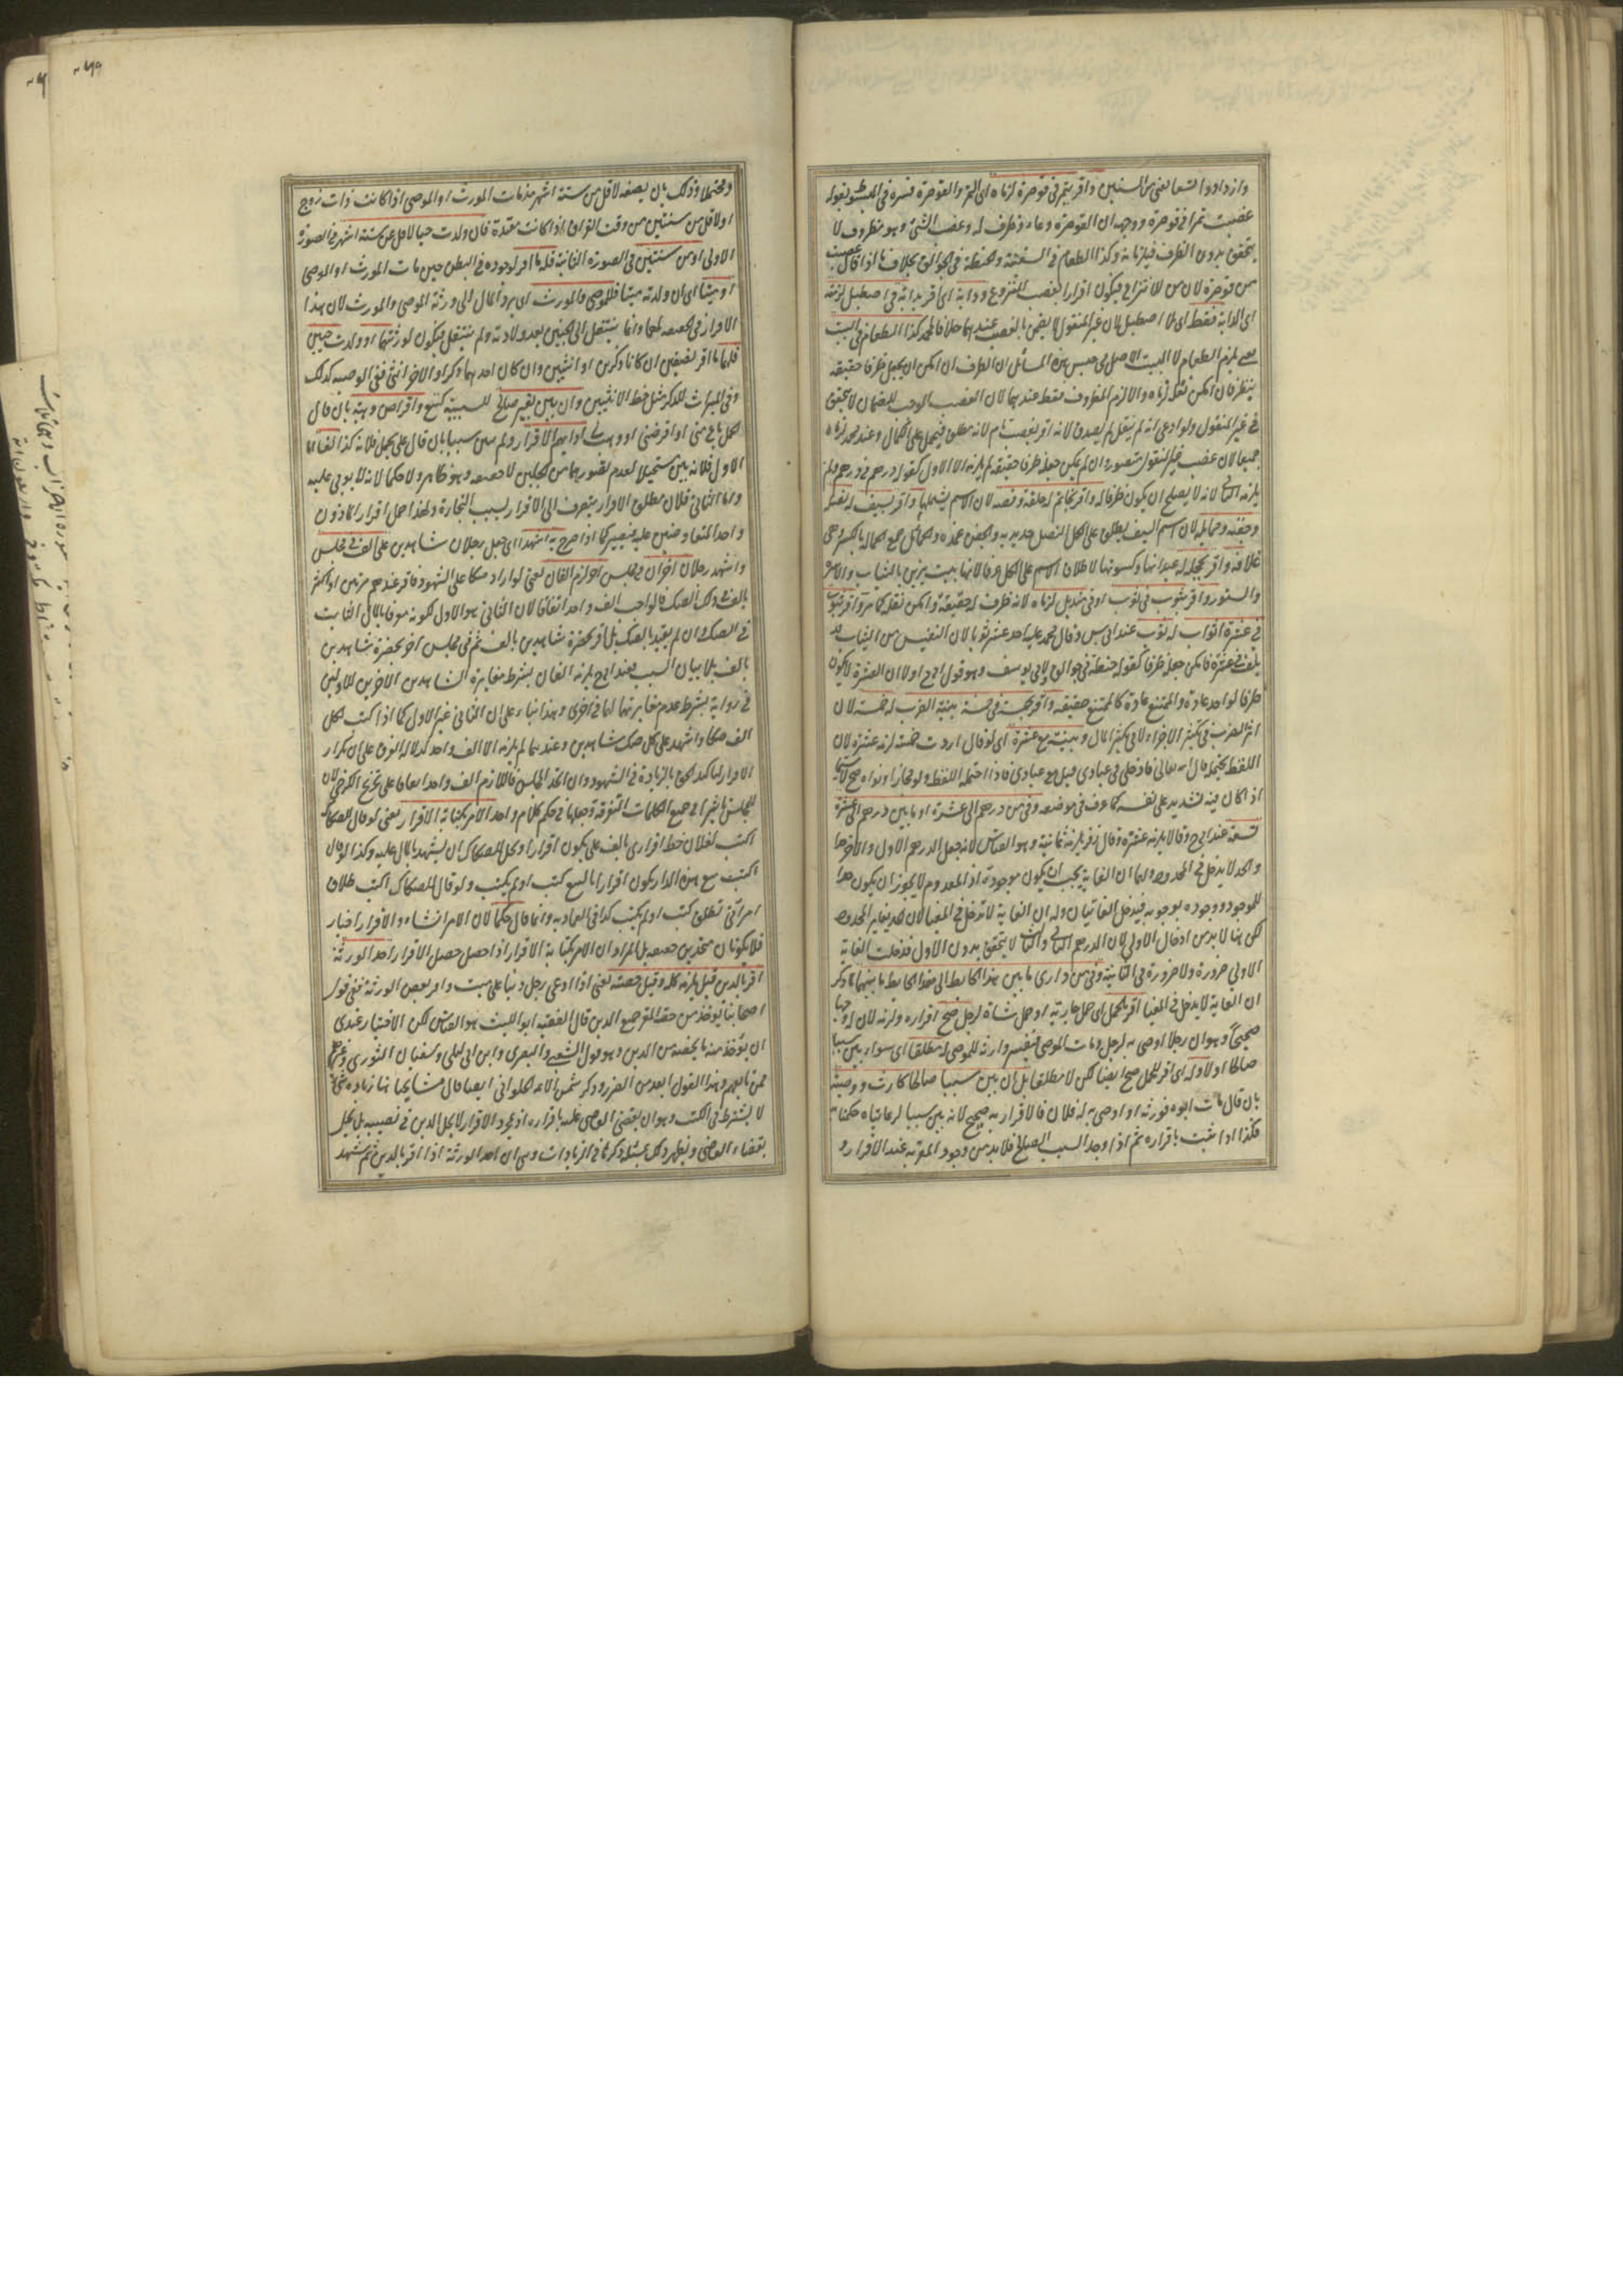 وازدادوا تسعا يعنى من السنين واقر بتمر فى قوصرة لزماه اى التمر والقوصرة فسره فى المبسوط بقوله
غصبت تمرا فى قوصرة ووجهه ان القوصرة وعاء وظرف له وغصب الشئ وهو مظروف لا
يتحقق بدون الظرف فيلزمانه وكذا الطعام فى السفينة والحنطة فى الجوالق بخلاف ما اذا قال غصبت
من قوصرة لان من للانتزاع فيكون اقرارا بغصب المنزوع ودابة اى اقر بدابة فى اصطبل لزمته
اى الدابة فقط اى بلا اصطبل لان غير المنقول لا يضمن بالغصب عندهما خلافا لمحمد كذا الطعام فى البيت
يلزم الطعام لا البيت الاصل فى جنس هذه المسائل ان الظرف ان امكن ان يجعل ظرفا حقيقة
ينظر فان امكن نقله لزماه والا لزم المظروف فقط عندهما لان الغصب الموجب للضمان لا يتحقق
فى غير المنقول ولو ادعى انه لم ينقل لم يصدق لانه اقر بغصب تام لانه مطلق فيحمل على الكمال وعند محمد لزماه
جميعا لان غصب غير المنقول متصور وان لم يكن جعله ظرفا حقيقة لم يلزمه الا الاول كقوله درهم فى درهم لم
يلزمه الثانى لانه لا يصلح ان يكون ظرفا له واقر بخاتم له حلقة وفصه لان الاسم يشملها واقر بسيف له نصله
وجفنه وحمائله لان اسم السيف يطلق على الكل النصل حديده والجفن غمده والحمائل جمع الحمالة بالكسر وهى
علاقته واقر بحجلة له عيدانها وكسوتها لاطلاق الاسم على الكل عرفا لانها بيت يزين بالثياب والاسرة
والستور واقر بثوب فى ثوب او فى منديل لزماه لانه ظرف له حقيقة وامكن نقله كما مر واقر بثوب
فى عشرة اثواب له ثوب عند ابى س وقال محمد عليه احد عشر ثوبا لان النفيس من الثياب قد
يلف فى عشرة فامكن جعله ظرفا كقوله حنطة فى جوالق ولابى يوسف وهو قول ابى ح اولا ان العشرة لا يكون
ظرفا لواحد عادة والممتنع عادة كالممتنع حقيقة واقر بخمسة فى خمسة بنية الضرب له خمسة لان
اثر الضرب فى تكثير الاجزاء لا فى تكثير المال وبنية مع عشرة اى لو قال اردت خمسة لزمه عشرة لان
اللفظ يحتمله قال الله تعالى فادخلى فى عبادى قيل مع عبادى فاذا احتمله اللفظ ولو مجازا ونواه صح لا سيما
اذا كان فيه تشديد على نفسه كما عرف فى موضعه وفى من درهم الى عشرة او ما بين درهم الى عشرة
تسعة عند ابى ح وقالا يلزمه عشرة وقال زفر يلزمه ثمانية وهو القياس لانه جعل الدرهم الاول والآخر حدا
والحد لا يدخل فى المحدود ولهما ان الغاية يجب ان يكون موجودة اذ المعدوم لا يجوز ان يكون حدا
للموجود ووجوده بوجوبه فيدخل الغايتان وله ان الغاية لا تدخل فى المغيا لان الحد يغاير المحدود
لكن هنا لا بد من ادخال الاولى لان الدرهم الثانى والثالث لا يتحقق بدون الاول فدخلت الغاية
الاولى ضرورة ولا ضرورة فى الثانية وفى من دارى ما بين هذا الحائط الى هذا الحائط ما بينهما لما ذكر
ان الغاية لا يدخل فى المغيا اقر بالحمل اى حمل جارية او حمل شاة لرجل صح اقراره ولزمه لان له وجها
صحيحا وهو ان رجلا اوصى به لرجل ومات الموصى فيقر وارثه للموصى له مطلقا اى سواء بين سببا
صالحا او لا وله اى اقر للحمل صح ايضا لكن لا مطلقا بل ان بين سببا صالحا كارث ووصية
بان قال مات ابوه فورثه او اوصى به له فلان فالاقرار به صحيح لانه بين سببا لو عايناه حكمنا به
فكذا اذا ثبت باقراره ثم اذا وجد السبب الصالح فلا بد من وجود المقر به عند الاقرار و
٢٦٩
ومحتملا وذلك بان يضعه لاقل من ستة اشهر مذ مات المورث او الموصى اذا كانت ذات زوج
او لاقل من سنتين من وقت الفراق اذا كانت معتدة فان ولدت حيا لاقل من ستة اشهر فى الصورة
الاولى او من سنتين فى الصورة الثانية فله ما اقر لوجوده فى البطن حين مات المورث او الموصى
او ميتا اى ان ولدته ميتا فللموصى والمورث اى يرد المال الى ورثة الموصى والمورث لان هذا
الاقرار فى الحقيقة لهما وانما ينتقل الى الجنين بعد ولادته ولم ينتقل فيكون لورثتهما او ولدت حيين
فلهما ما اقر نصفين ان كانا ذكرين او انثيين وان كان احدهما ذكرا والاخر انثى ففى الوصية كذلك
وفى الميراث للذكر مثل حظ الانثيين وان بين بغير صالح للسببية كبيع واقراض وهبة بان قال
الحمل باع منى او اقرضنى او وهب لى او ابهم الاقرار ولم يبين سببا بان قال على لحمل فلانة كذا لغا اما
الاول فلانه بين مستحيلا لعدم تصورهما من الجنين لا حقيقة وهو ظاهر ولا حكما لانه لا يولى عليه
واما الثانى فلان مطلق الاقرار ينصرف الى الاقرار بسبب التجارة ولهذا حمل اقرار الماذون
واحد المتفاوضين عليه فيصير كما اذا صرح به اشهد اى جعل رجلان شاهدين على الف فى مجلس
واشهد رجلان اخران فى مجلس اخر لزم الفان يعنى لو اراد صكا على الشهود فاقر عندهم مرتين او اكثر
بالف فى ذلك الصك فالواجب الف واحد اتفاقا لان الثانى هو الاول لكونه معرفا بالمال الثابت
فى الصك وان لم يقيد بالصك بل اقر بحضرة شاهدين بالف ثم فى مجلس اخر بحضرة شاهدين
بالف بلا بيان السبب فعند ابى ح يلزمه الفان بشرط مغايرة الشاهدين الآخرين للاولين
فى رواية وبشرط عدم مغايرتهما لهما فى اخرى وهذا بناء على ان الثانى غير الاول كما اذا كتب لكل
الف صكا واشهد على كل صك شاهدين وعندهما لم يلزمه الا الف واحد لدلالة العرف على ان تكرار
الاقرار لتاكيد الحق بالزيادة فى الشهود وان اتحد المجلس فاللازم الف واحد اتفاقا على تخريج الكرخى لان
للمجلس تاثيرا فى جمع الكلمات المتفرقة وجعلها فى حكم كلام واحد الامر بكتابة الاقرار يعنى لو قال للصكاك
اكتب لفلان خط اقرارى بالف على يكون اقرارا وحل للصكاك ان يشهد بالمال عليه وكذا لو قال
اكتب بيع هذه الدار يكون اقرارا بالبيع كتب او لم يكتب ولو قال للصكاك اكتب طلاق
امراتى تطلق كتب او لم يكتب كذا فى العمادية وانما قال حكما لان الامر انشاء والاقرار اخبار
فلا يكونان متحدين حقيقة بل المراد ان الامر بكتابة الاقرار اذا حصل حصل الاقرار احد الورثة
اقر بالدين قيل يلزمه كله وقيل حصته يعنى اذا ادعى رجل دينا على ميت واقر بعض الورثة ففى قول
اصحابنا يؤخذ من حصة المقر جميع الدين قال الفقيه ابو الليث هو القياس لكن الاختيار عندى
ان يؤخذ منه ما يخصه من الدين وهو قول الشعبى والبصرى وابن ابى ليلى وسفيان الثورى وغيرهم
ممن تابعهم وهذا القول ابعد من الضرر وذكر شمس الائمة الحلوانى ايضا قال مشايخنا هنا زيادة شئ
لا يشترط فى الكتب وهو ان يقضى القاضى عليه باقراره اذ بمجرد الاقرار لا يحل الدين فى نصيبه بل يحل
بقضاء القاضى ويظهر ذلك بمسئلة ذكرها فى الزيادات وهى ان احد الورثة اذا اقر بالدين ثم شهد